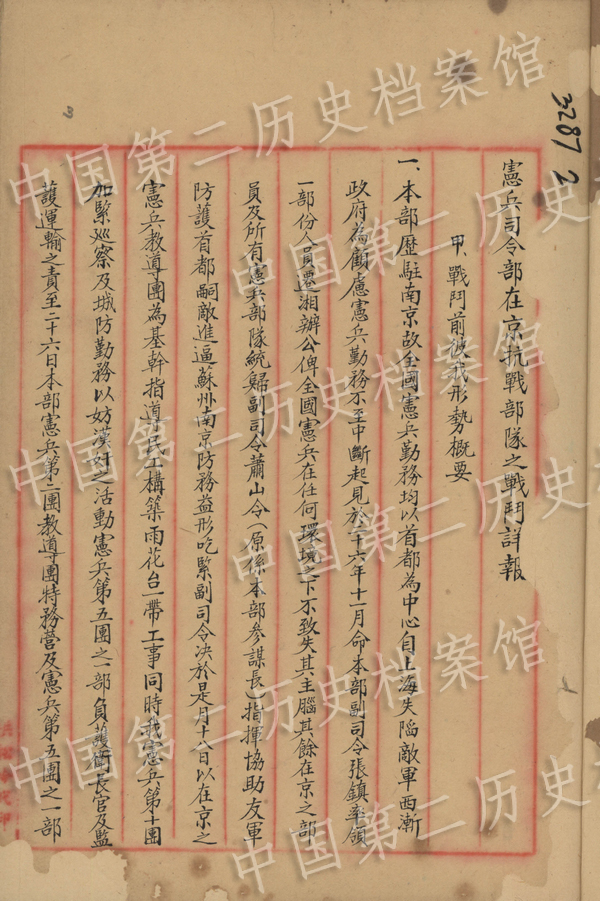 3287 2
憲兵司令部在京抗戰部隊之戰鬥詳報
甲、戰鬥前彼我形勢概要
一、本部歷駐南京故全國憲兵勤務均以首都為中心自上海失陷敵軍西漸
政府為顧慮憲兵勤務不至中斷起見於二十六年十一月命本部副司令張鎮率領
一部份人員遷湘辦公俾全國憲兵在任何環境之下不致失其主腦其餘在京之部
員及所有憲兵部隊統歸副司令蕭山令（原係本部參謀長）指揮協助友軍
防護首都 嗣敵進逼蘇州南京防務益形吃緊副司令決於是月十八日以在京之
憲兵教導團為基幹指導民工構築雨花台一帶工事同時我憲兵第十團
加緊巡察及城防勤務以妨漢奸之活動憲兵第五團之一部負護衛長官及監
護運輸之責至二十六日本部憲兵第二團教導團特務營及憲兵第五團之一部
中国第二历史档案馆
中国第二历史档案馆
中国第二历史档案馆
中国第二历史档案馆
中国第二历史档案馆
中国第二历史档案馆
中国第二历史档案馆
中国第二历史档案馆